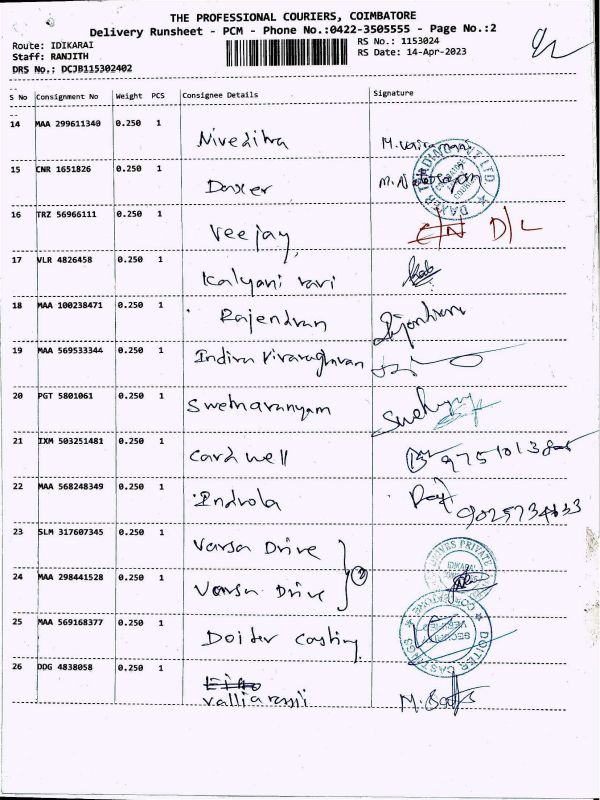 THE PROFESSIONAL COURIERS, COIMBATORE
Delivery Runsheet - PCM - Phone No.:0422-3505555 - Page No.:2
Route: IDIKARAI RS No.: 1153024
Staff: RANJITH RS Date: 14-Apr-2023
DRS No.: DCJB115302402
S No Consignment No Weight PCS Consignee Details Signature
14 MAA 299611340 0.250 1
Niveditha
15 CNR 1651826 0.250 1
Daxer
16 TRZ 56966111 0.250 1
Veejay D/L
17 VLR 4826458 0.250 1
Kalyani ravi
18 MAA 100238471 0.250 1
Rajendran
19 MAA 569533344 0.250 1
Indira Viraraghavan
20 PGT 5801061 0.250 1
Swetharanyam
21 IXM 503251481 0.250 1
Cardwell
22 MAA 568248349 0.250 1
Indrola
23 SLM 317607345 0.250 1
Varsa Drive
24 MAA 298441528 0.250 1
Varsa Drive 2
25 MAA 569168377 0.250 1
Doiter Casting DOITER CASTINGS SECURITY
26 DDG 4838058 0.250 1
Valliarasi